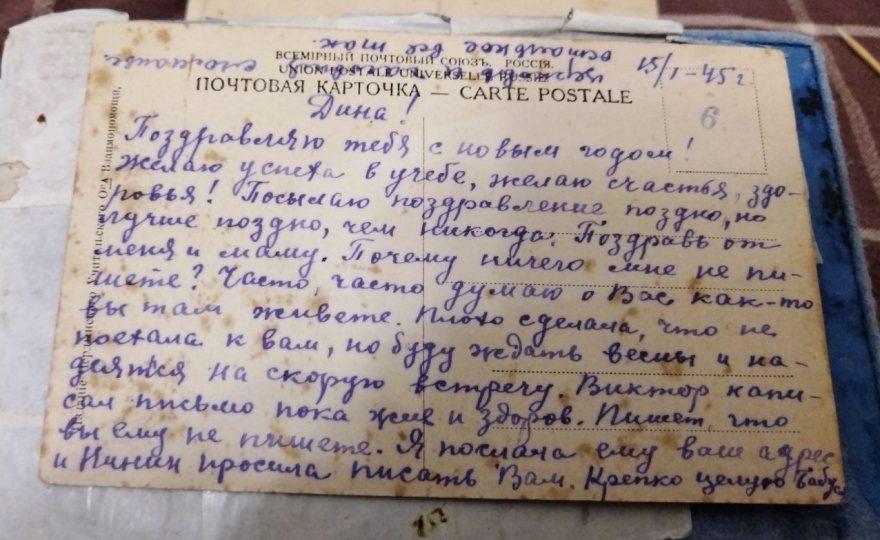 15/I-45 г.
ВСЕМІРНЫЙ ПОЧТОВЫЙ СОЮЗЪ. РОССІЯ.
UNION POSTALE UNIVERSELLE RUSSIE
ПОЧТОВАЯ КАРТОЧКА — CARTE POSTALE
6
Дина!
Поздравляю тебя с новым годом!
желаю успеха в учебе, желаю счастья, здо-
ровья! Посылаю поздравление поздно, но
лучше поздно, чем никогда. Поздравь от
меня и маму. Почему ничего мне не пи-
шете? Часто, часто думаю о Вас как-то
вы там живете. Плохо сделала, что не
поехала к вам, но буду ждать весны и на-
деяться на скорую встречу. Виктор напи-
сал письмо пока жив и здоров. Пишет, что
вы ему не пишете. Я послала ему ваш адрес
и Нинин просила писать Вам. Крепко целую Бабуся
остальное все так.
Взаимопомощи.
152